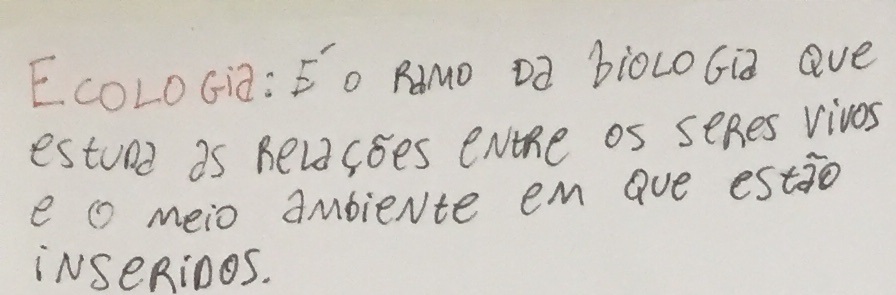 Ecologia: É o ramo da biologia que
estuda as relações entre os seres vivos
e o meio ambiente em que estão
inseridos.